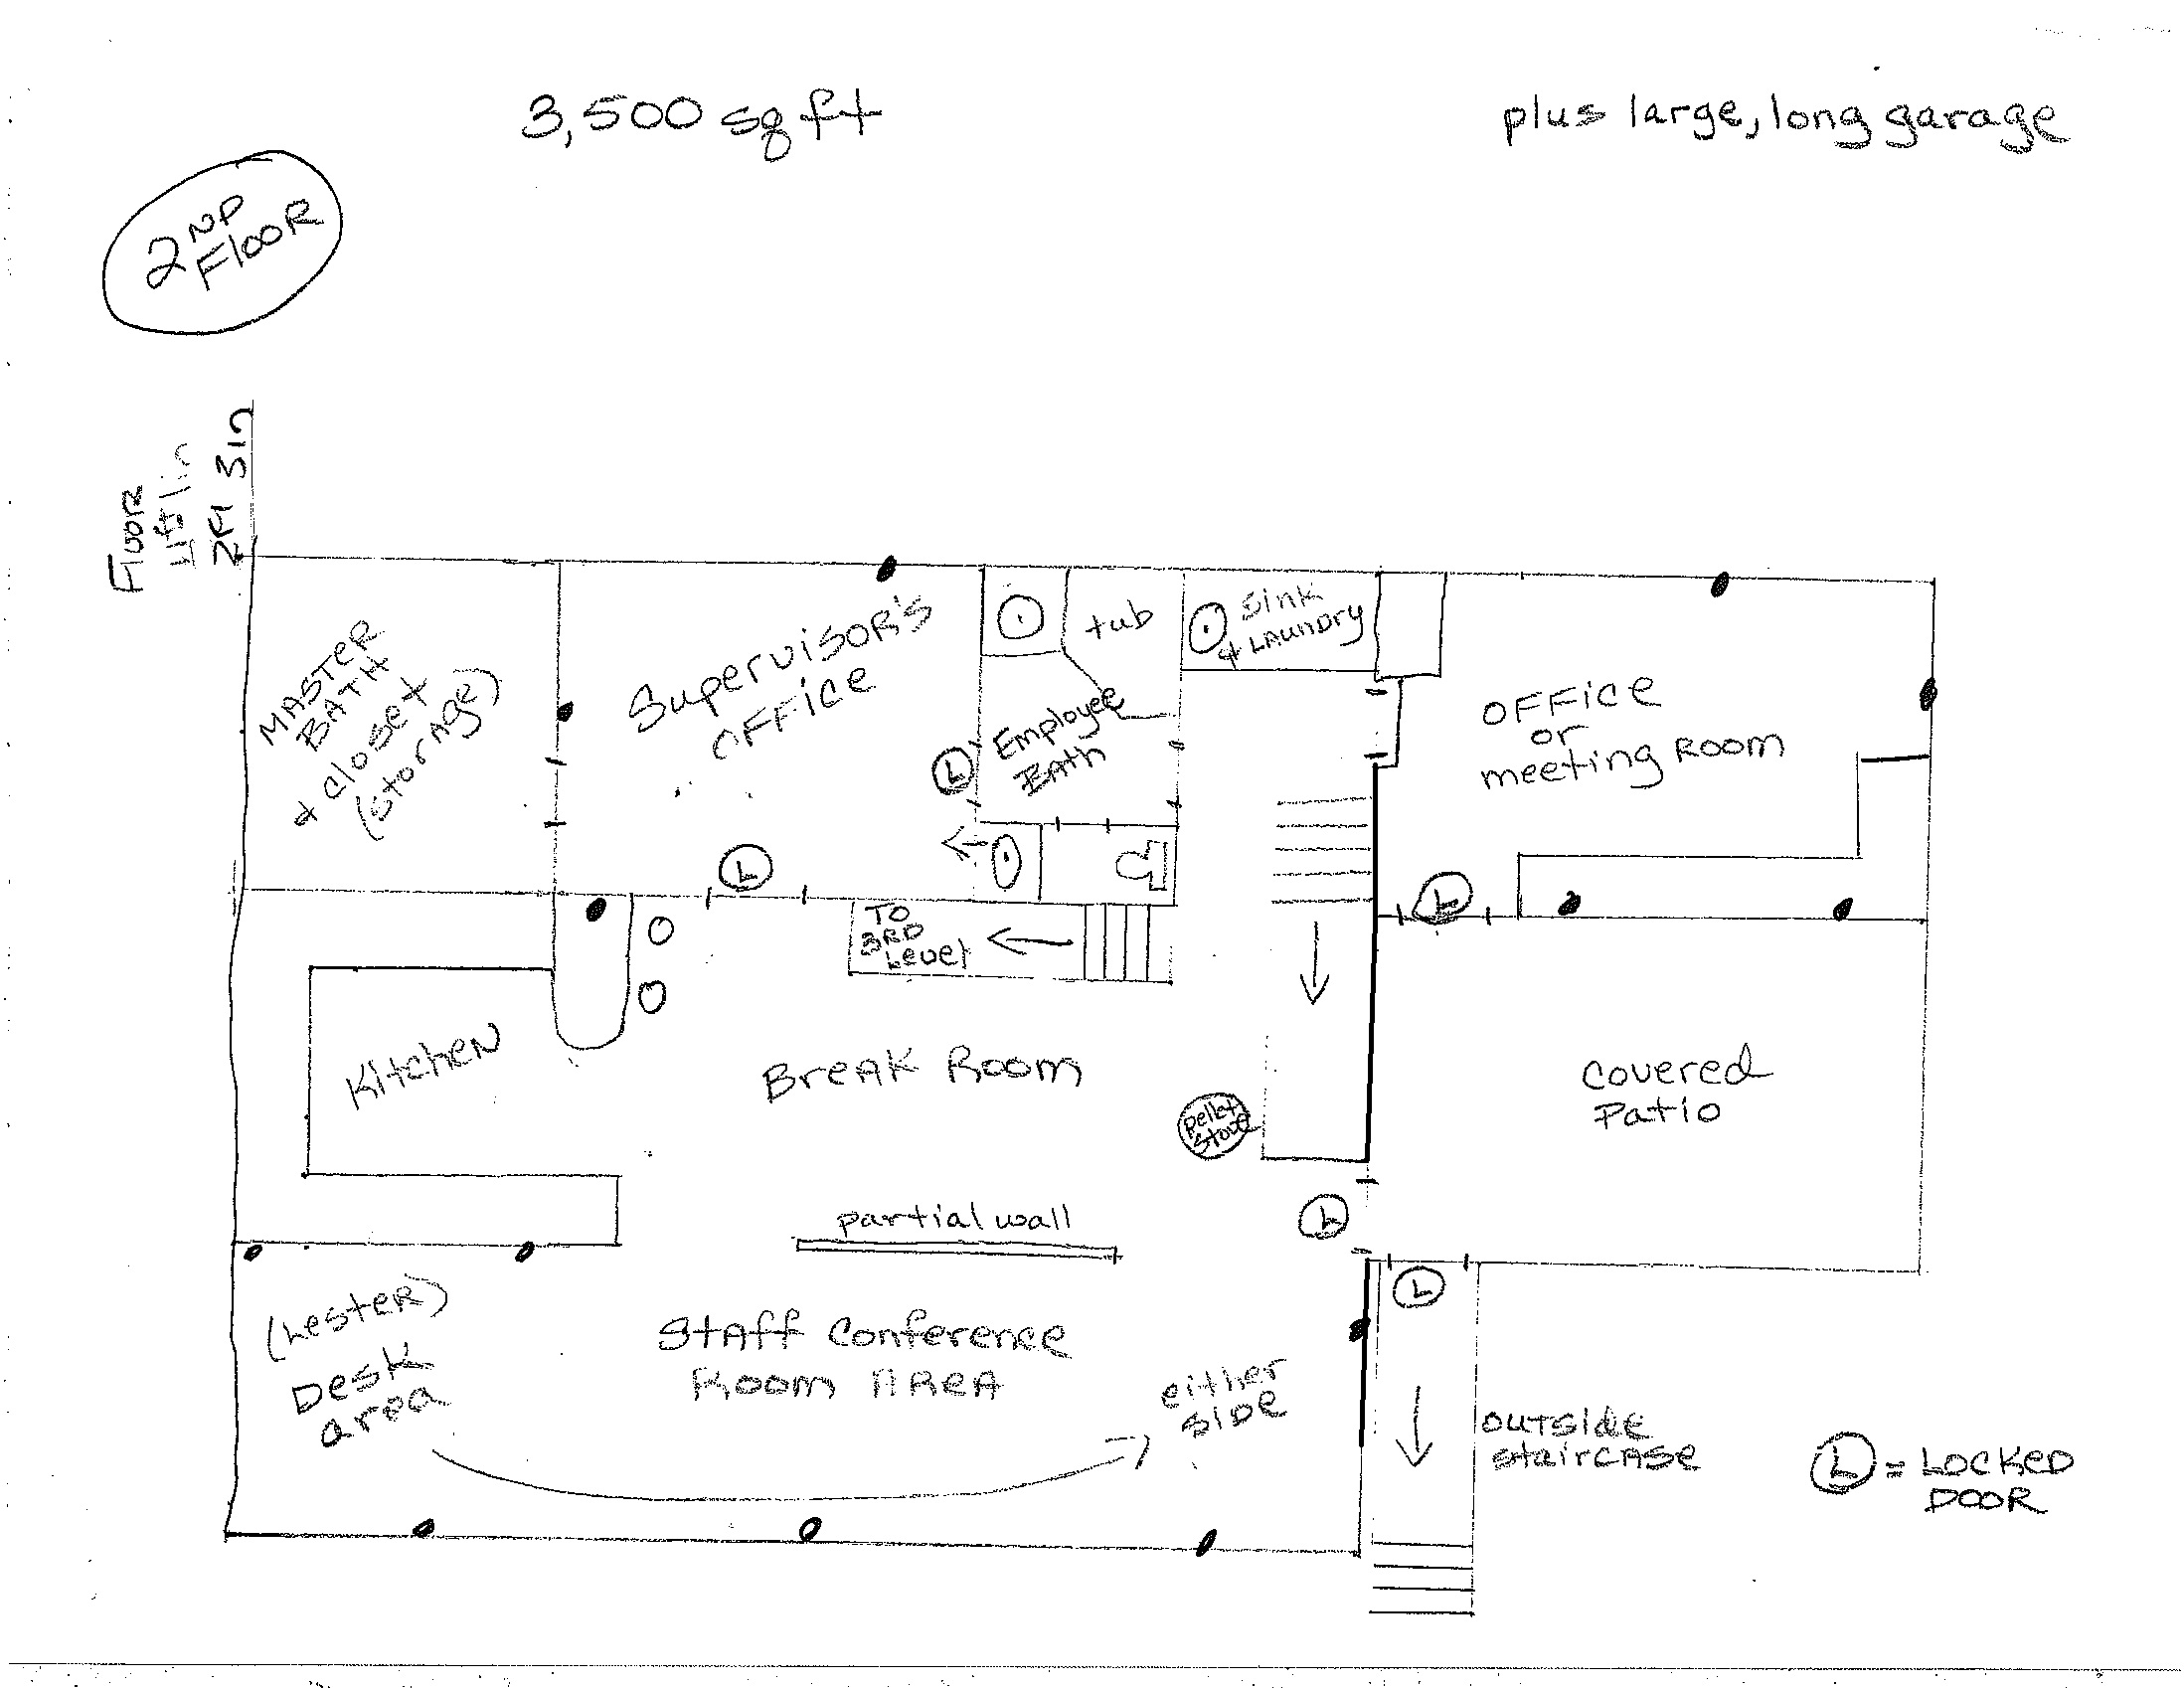 3,500 sq ft
plus large, long garage
2ND
FLOOR
Floor
lift in
2ft 3in
MASTER
BATH
+ closet
(storage)
Supervisor's
OFFICE
tub
Sink
+ LAUNDRY
Employee
BAth
L
L
OFFICE
or
meeting Room
L
TO
3RD
Level
Kitchen
Break Room
Pellet
Stove
Covered
Patio
partial wall
L
L
(Lester)
Desk
area
Staff Conference
Room AREA
either
side
outside
staircase
L = LOCKED
DOOR